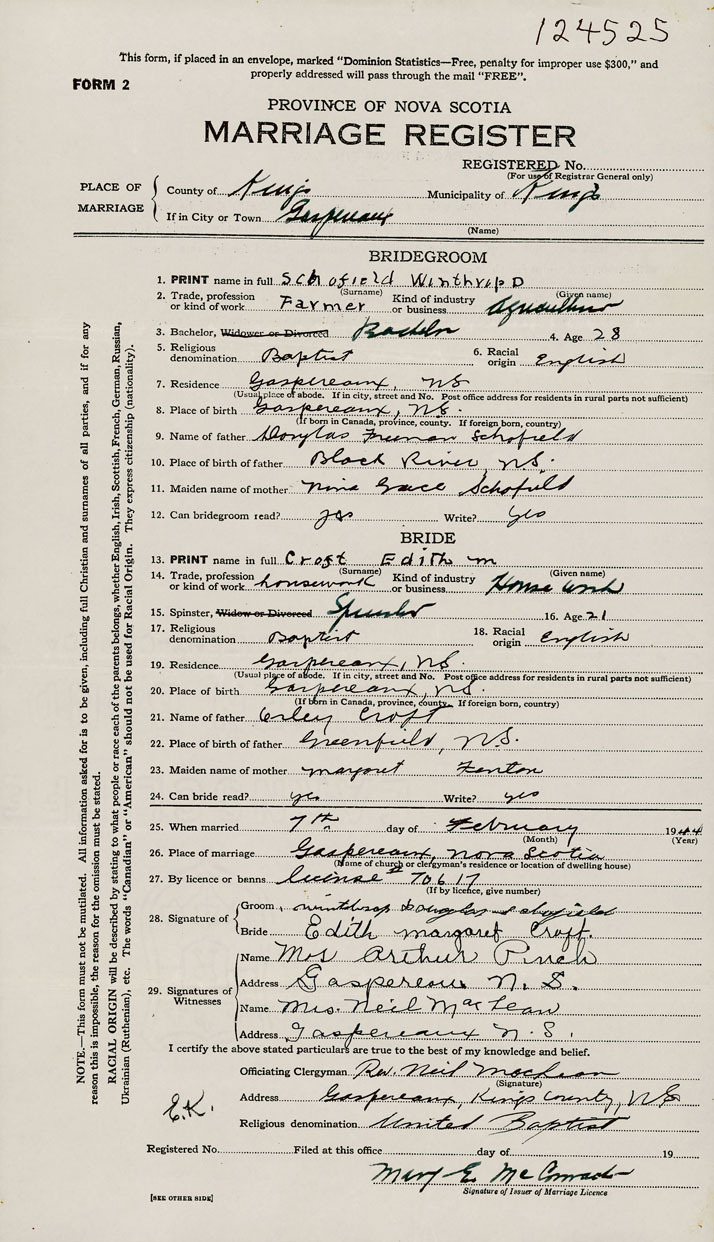 124525
This form, if placed in an envelope, marked "Dominion Statistics—Free, penalty for improper use $300," and
properly addressed will pass through the mail "FREE".
FORM 2
PROVINCE OF NOVA SCOTIA
MARRIAGE REGISTER
REGISTERED No.
(For use of Registrar General only)
PLACE OF MARRIAGE
County of Kings Municipality of Kings
If in City or Town Gaspereaux
(Name)
BRIDEGROOM
1. PRINT name in full Schofield Winthrop D
(Surname) (Given name)
2. Trade, profession or kind of work Farmer Kind of industry or business Agriculture
3. Bachelor, Widower or Divorced Bachelor 4. Age 28
5. Religious denomination Baptist 6. Racial origin English
7. Residence Gaspereaux, NS
(Usual place of abode. If in city, street and No. Post office address for residents in rural parts not sufficient)
8. Place of birth Gaspereaux, NS.
(If born in Canada, province, county. If foreign born, country)
9. Name of father Douglas Freeman Schofield
10. Place of birth of father Black River, NS.
11. Maiden name of mother Nina Grace Schofield
12. Can bridegroom read? yes Write? yes
BRIDE
13. PRINT name in full Croft Edith M
(Surname) (Given name)
14. Trade, profession or kind of work housework Kind of industry or business House work
15. Spinster, Widow or Divorced Spinster 16. Age 21
17. Religious denomination Baptist 18. Racial origin English
19. Residence Gaspereaux, NS.
(Usual place of abode. If in city, street and No. Post office address for residents in rural parts not sufficient)
20. Place of birth Gaspereaux, NS.
(If born in Canada, province, county. If foreign born, country)
21. Name of father Croft
22. Place of birth of father Greenfield, NS.
23. Maiden name of mother Margaret Fenton
24. Can bride read? yes Write? yes
25. When married 7th day of February 1944
(Month) (Year)
26. Place of marriage Gaspereaux, Nova Scotia
(Name of church or clergyman's residence or location of dwelling house)
27. By licence or banns license # 70617
(If by licence, give number)
28. Signature of
Groom Winthrop Douglas Schofield
Bride Edith Margaret Croft.
29. Signatures of Witnesses
Name Mrs Arthur Pinch
Address Gaspereau N. S.
Name Mrs. Neil MacLean
Address Gaspereaux N.S.
I certify the above stated particulars are true to the best of my knowledge and belief.
Officiating Clergyman Rev. Neil MacLean
(Signature)
Address Gaspereaux, Kings County, NS
E.K.
Religious denomination United Baptist
Registered No. Filed at this office day of 19
Mary E.
Signature of Issuer of Marriage Licence
[SEE OTHER SIDE]
NOTE.—This form must not be mutilated. All information asked for is to be given, including full Christian and surnames of all parties, and if for any
reason this is impossible, the reason for the omission must be stated.
RACIAL ORIGIN will be described by stating to what people or race each of the parents belongs, whether English, Irish, Scottish, French, German, Russian,
Ukrainian (Ruthenian), etc. The words "Canadian" or "American" should not be used for Racial Origin. They express citizenship (nationality).